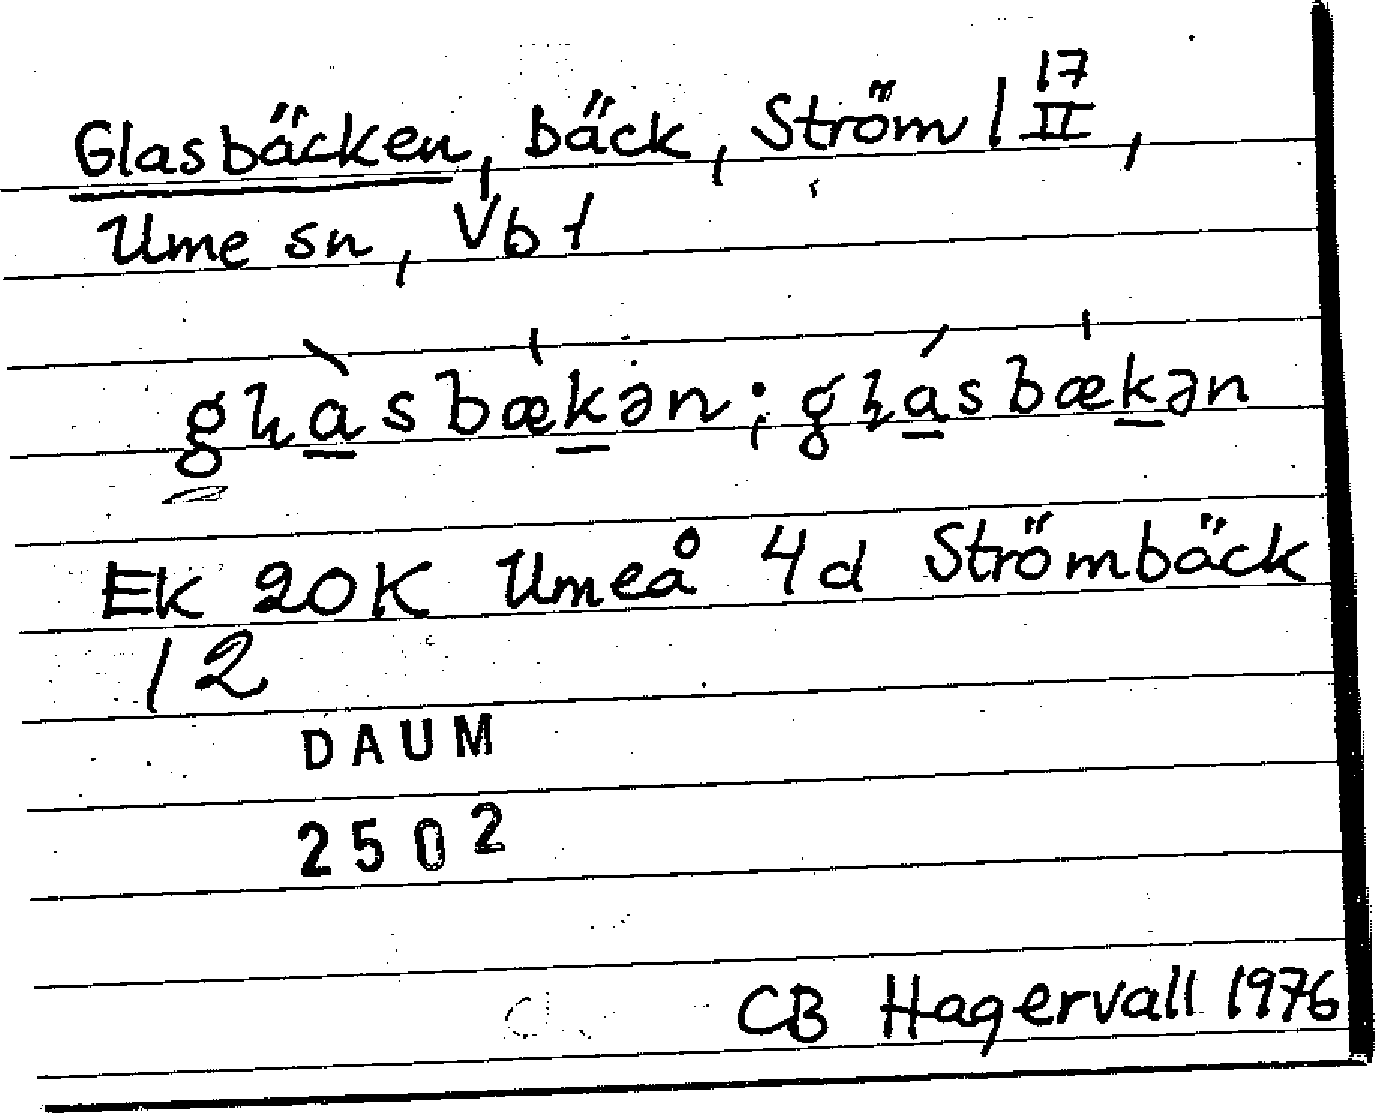 Glasbäcken, bäck, Ström 1 17/II,
Ume sn, Vbt
gɫàsbækən; gɫásbækən
EK 20K Umeå 4d Strömbäck
12
DAUM
2502
CB Hagervall 1976